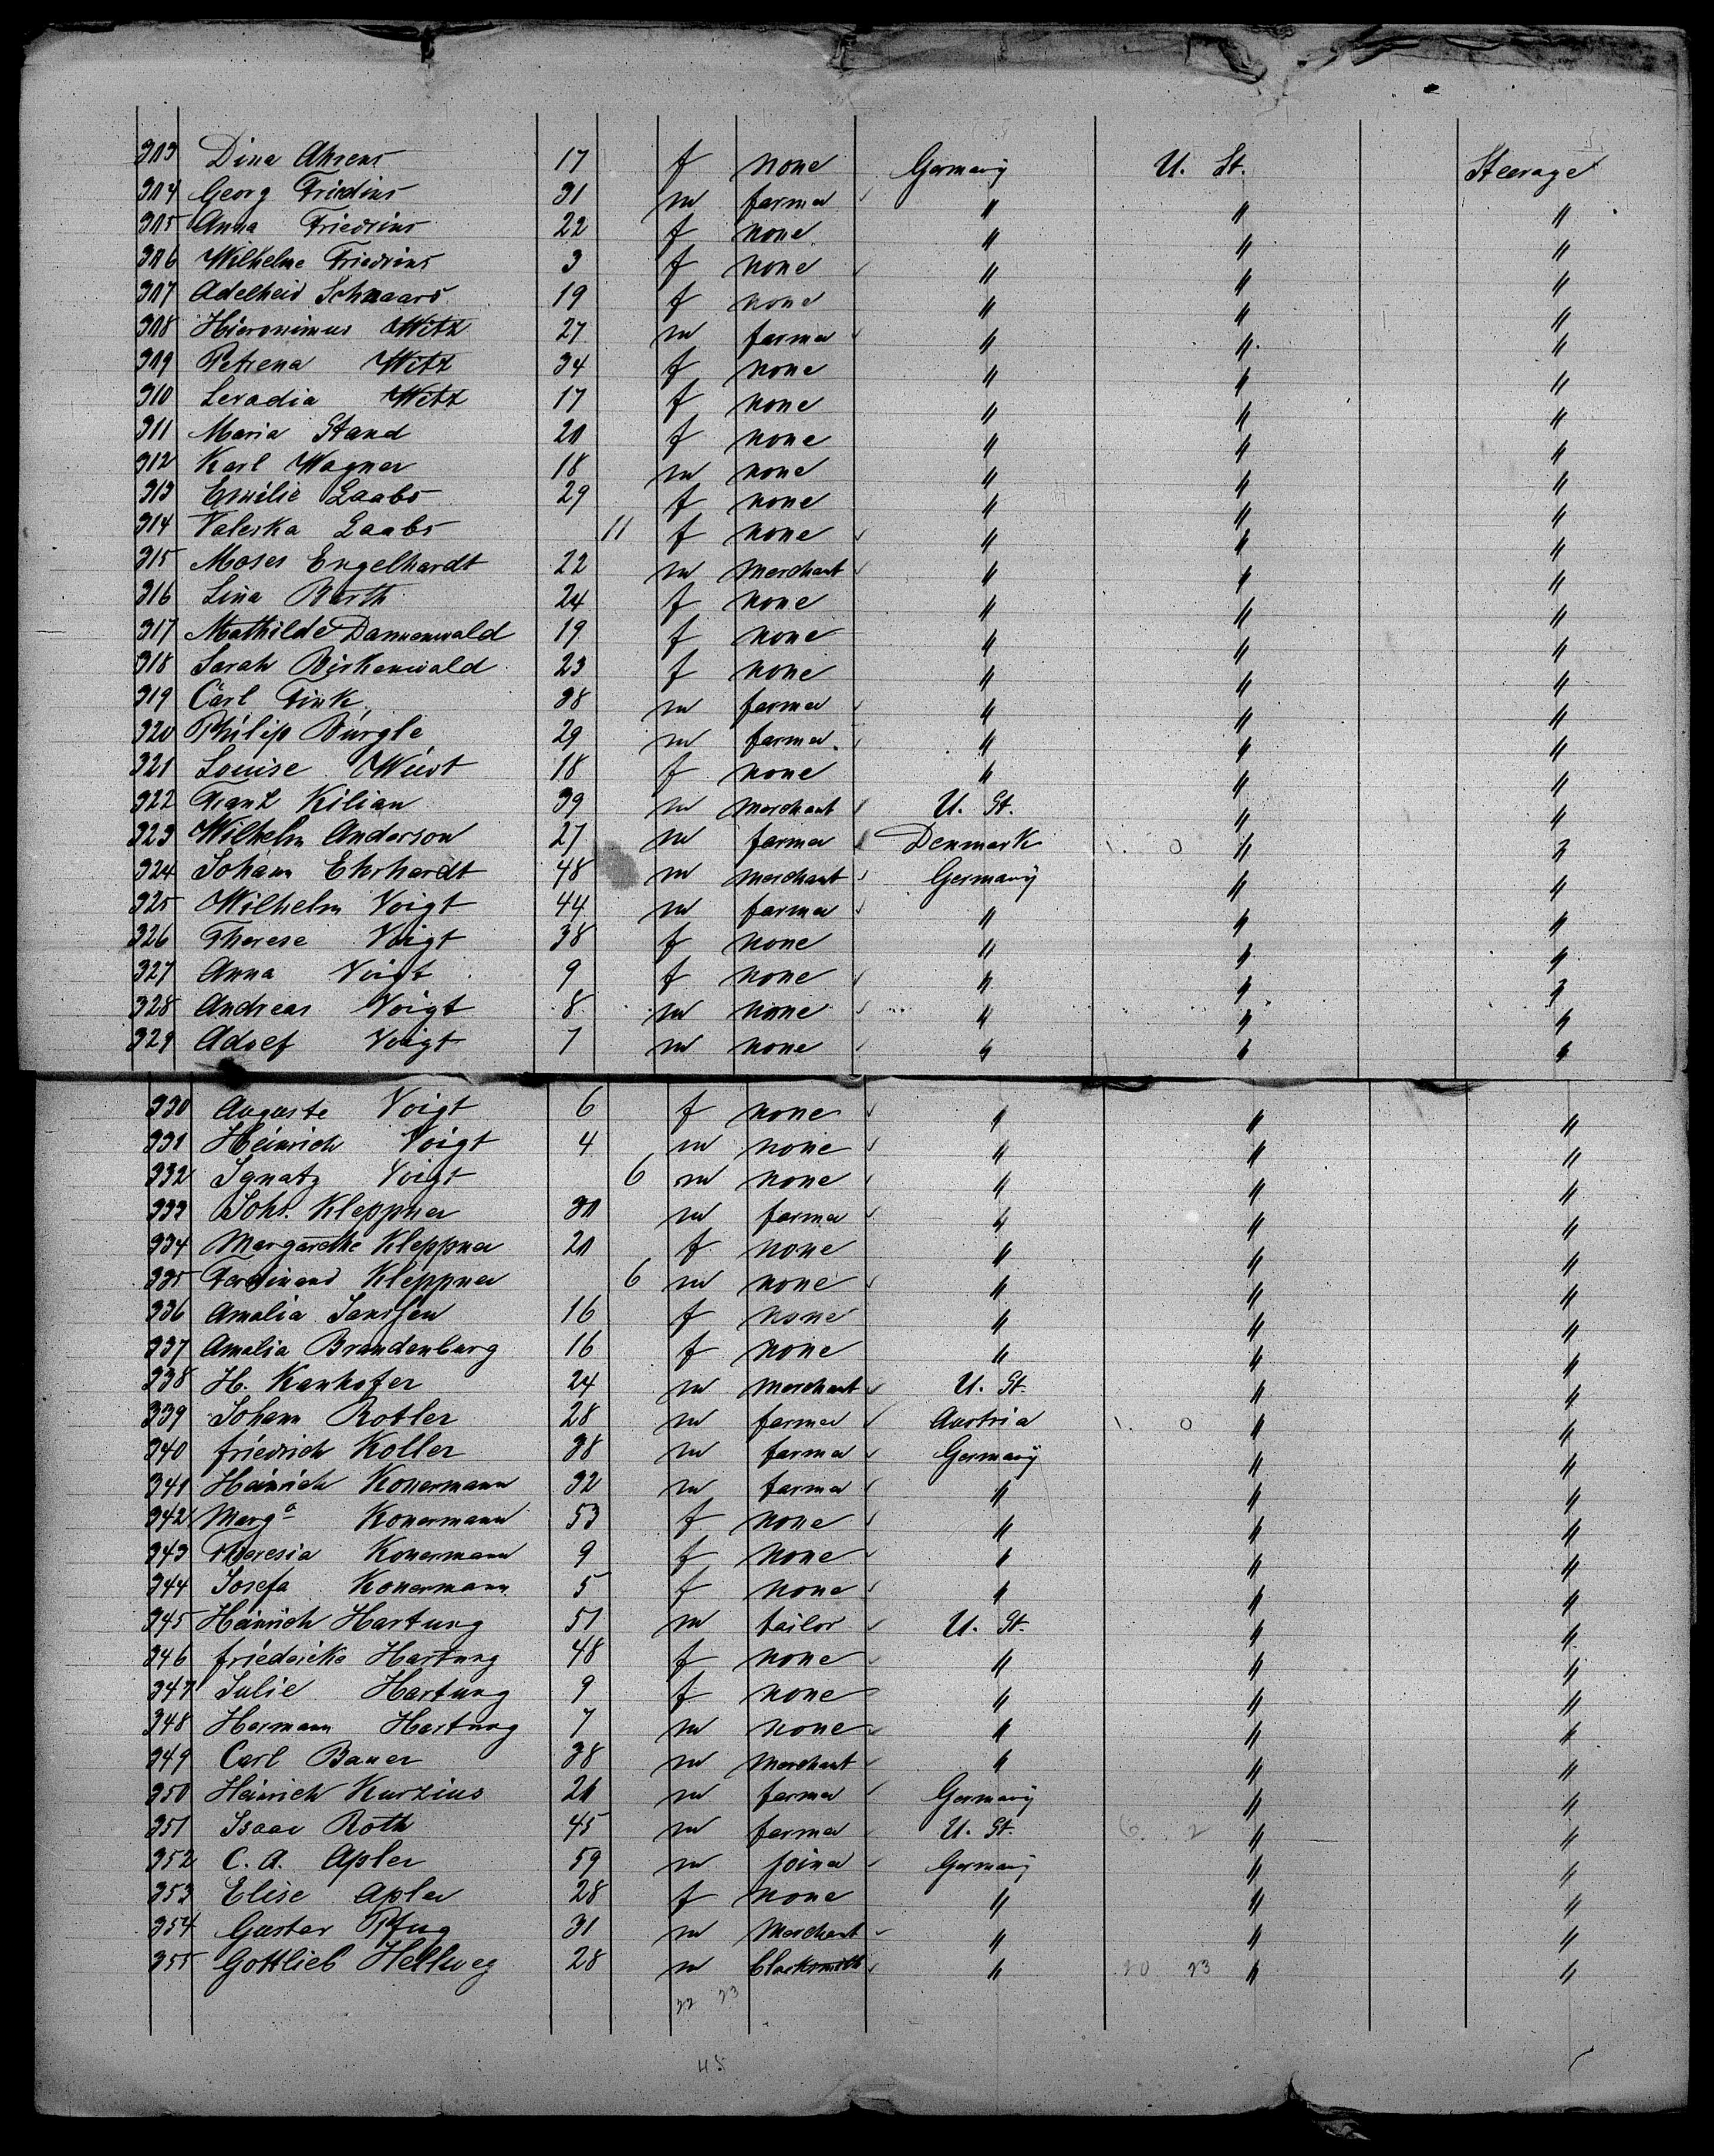 303 Dina Ahrens 17 f none Germany U. St. Steerage
304 Georg Friedrins 31 m farmer " " "
305 Anna Friedrins 22 f none " " "
306 Wilhelme Friedrins 3 f none " " "
307 Adelheid Schnaars 19 f none " " "
308 Hieronimus Witz 27 m farmer " " "
309 Petrena Witz 34 f none " " "
310 Leradia Witz 17 f none " " "
311 Maria Stand 20 f none " " "
312 Karl Wagner 18 m none " " "
313 Emilie Laabs 29 f none " " "
314 Valeska Laabs 11 f none " " "
315 Moses Engelhardt 22 m merchant " " "
316 Lina Barth 24 f none " " "
317 Mathilde Dannenwald 19 f none " " "
318 Sarah Birkenwald 23 f none " " "
319 Carl Fink 38 m farmer " " "
320 Philip Bürgle 29 m farmer " " "
321 Louise Wüst 18 f none " " "
322 Franz Kilian 39 m merchant U. St. " "
323 Wilhelm Anderson 27 m farmer Denmark 1. 0 " "
324 Johann Ehrhardt 48 m merchant Germany " "
325 Wilhelm Voigt 44 m farmer " " "
326 Therese Voigt 38 f none " " "
327 Anna Voigt 9 f none " " "
328 Andreas Voigt 8 m none " " "
329 Adolf Voigt 7 m none " " "
330 Auguste Voigt 6 f none " " "
331 Heinrich Voigt 4 m none " " "
332 Ignatz Voigt 6 m none " " "
333 Johs. Kleppner 30 m farmer " " "
334 Margarethe Kleppner 20 f none " " "
335 Ferdinand Kleppner 6 m none " " "
336 Amalia Janssen 16 f none " " "
337 Amalia Brandenburg 16 f none " " "
338 H. Kanhofer 24 m merchant U. St. " "
339 Johann Rotler 28 m farmer Austria 1. 0 " "
340 Friedrich Koller 38 m farmer Germany " "
341 Heinrich Konermann 32 m farmer " " "
342 Marg.a Konermann 53 f none " " "
343 Theresia Konermann 9 f none " " "
344 Josefa Konermann 5 f none " " "
345 Heinrich Hartung 51 m tailor U. St. " "
346 Friedericke Hartung 48 f none " " "
347 Julie Hartung 9 f none " " "
348 Hermann Hartung 7 m none " " "
349 Carl Bauer 38 m merchant " " "
350 Heinrich Kurzius 21 m farmer Germany " "
351 Isaac Roth 45 m farmer U. St. 6. 2 " "
352 C. A. Apler 59 m joiner Germany " "
353 Elise Apler 28 f none " " "
354 Gustav Pfug 31 m Merchant " " "
355 Gottlieb Hellweg 28 m blacksmith " 20 23 " "
22 23
45